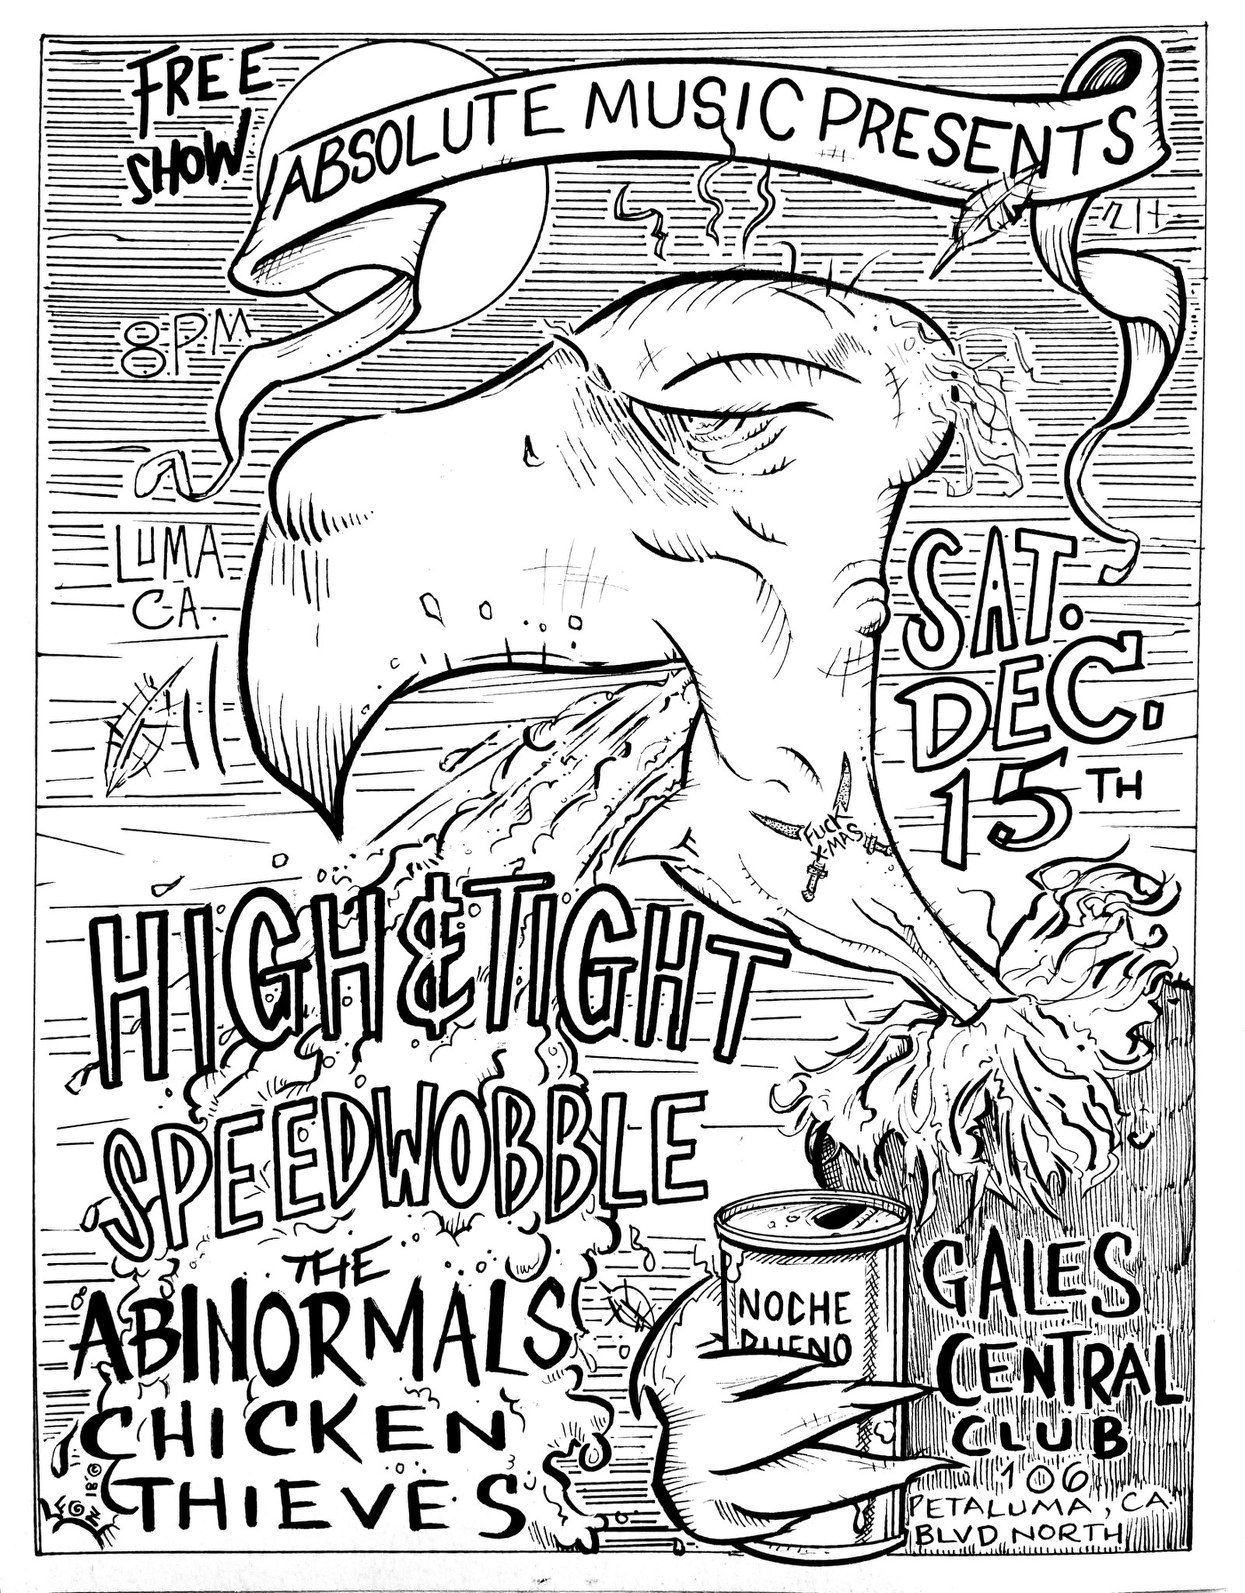 FREE
SHOW
ABSOLUTE MUSIC PRESENTS
21+
8PM
LUMA
CA.
SAT.
DEC.
15TH
FUCK
X-MAS
HIGH & TIGHT
SPEEDWOBBLE
THE
ABINORMALS
CHICKEN
THIEVES
NOCHE
BUENO
GALES
CENTRAL
CLUB
106
PETALUMA, CA
BLVD NORTH